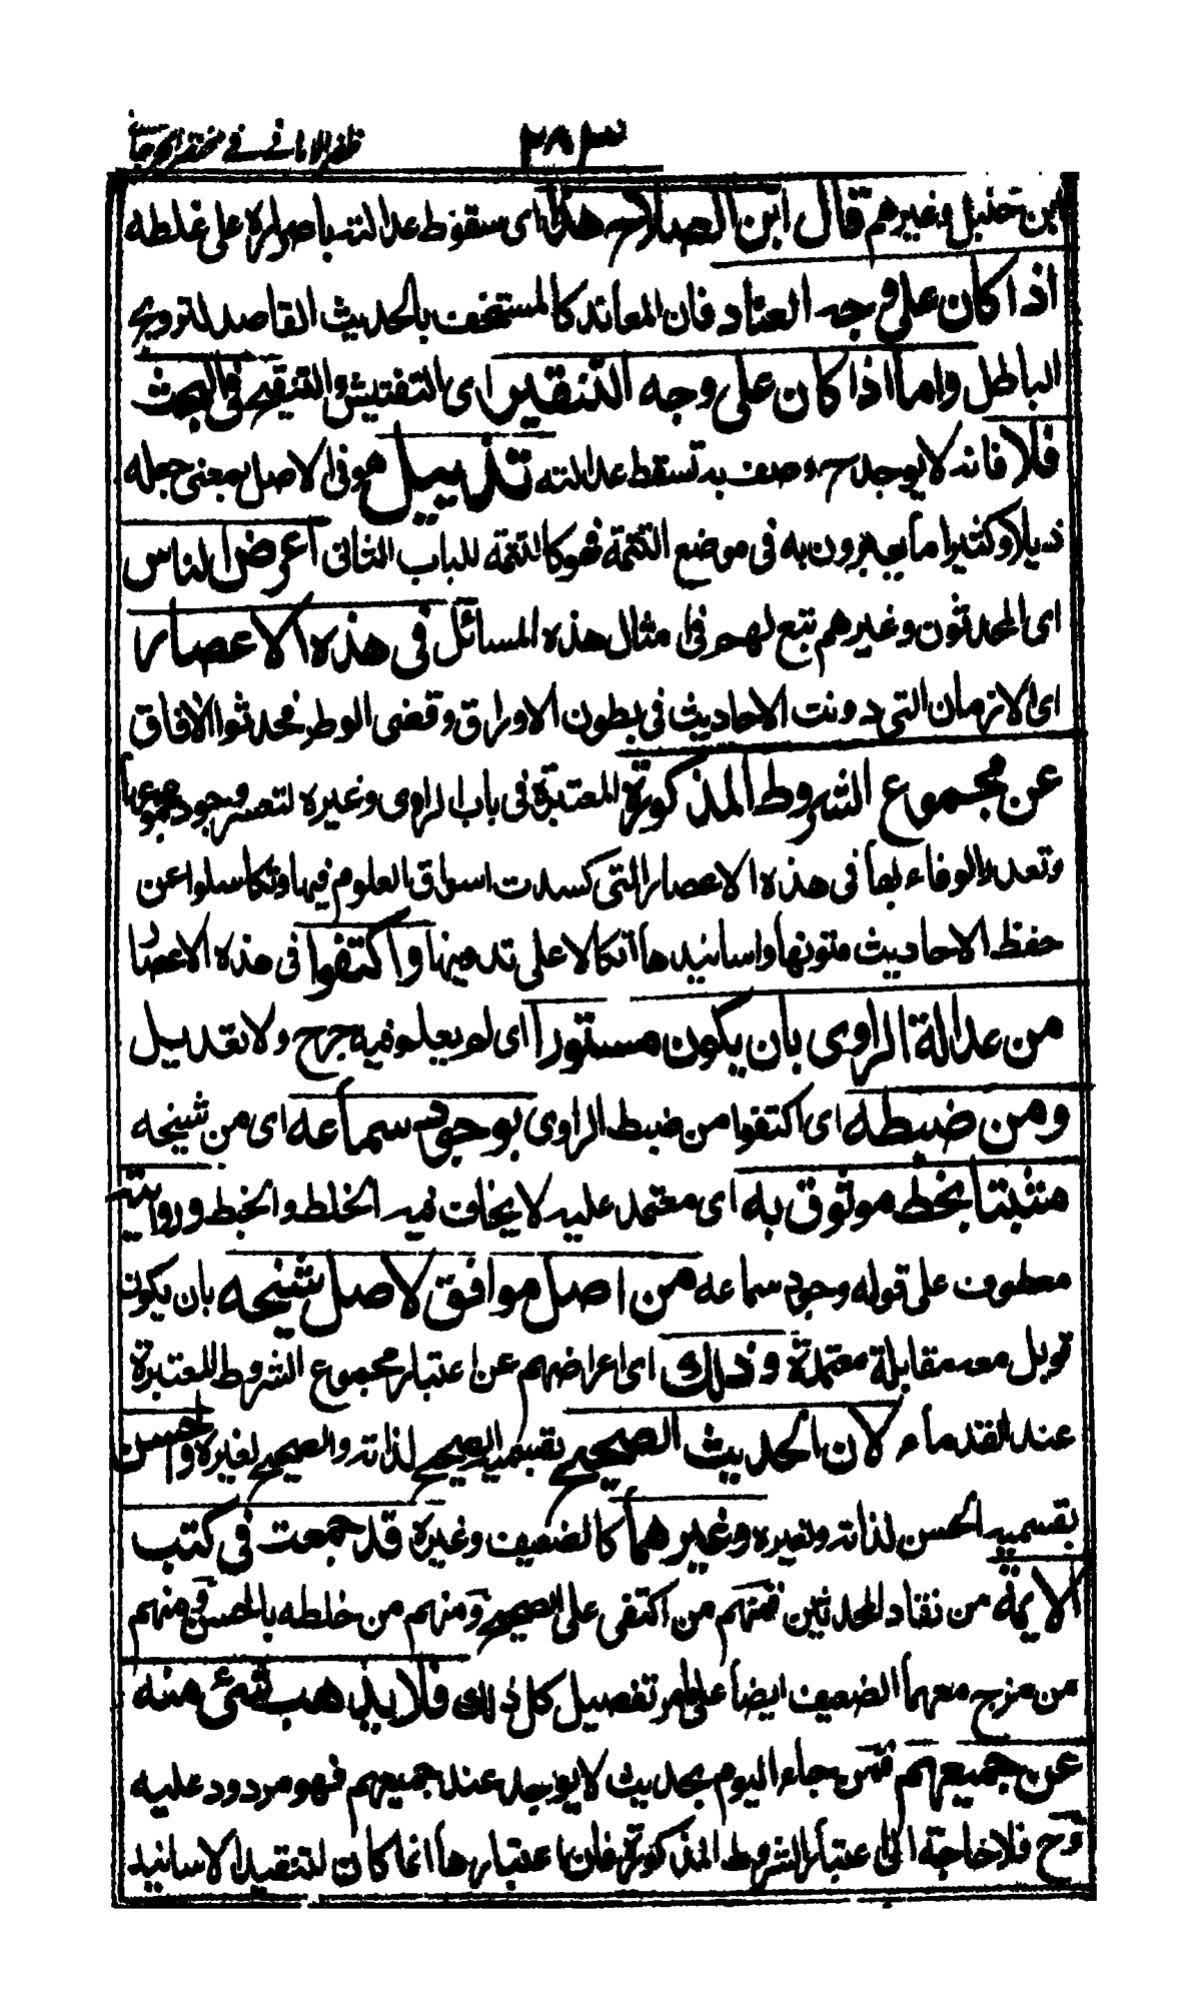 ظفر الاماني في مختصر الجرجاني
٢٨٣
ابن حنبل وغيرهم قال ابن الصلاح هذا اى سقوط عدالته باصراره على غلطه
اذا كان على وجه العناد فان المعاند كالمستخف بالحديث القاصد لترويج
الباطل واما اذا كان على وجه التنقير اى التفتيش والتنقيح فى البحث
فلا فانه لا يوجد ح وصف به تسقط عدالته تذييل هو فى الاصل بمعنى جعله
ذيلا وكثيرا ما يعبرون به فى موضع التتمة فهو كالتتمة للباب الثانى اعرض الناس
اى المحدثون وغيرهم تبع لهم فى امثال هذه المسائل فى هذه الاعصار
اى الازمان التى دونت الاحاديث فى بطون الاوراق وقضى الوطر محدثوا الافاق
عن مجموع الشروط المذكورة المعتبرة فى باب الراوى وغيره لتعسر وجود مجموعها
وتعذر الوفاء بها فى هذه الاعصار التى كسدت اسواق العلوم فيها وتكاسلوا عن
حفظ الاحاديث متونها واسانيدها اتكالا على تدوينها واكتفوا فى هذه الاعصار
من عدالة الراوى بان يكون مستورا اى لم يعلم فيه جرح ولا تعديل
ومن ضبطه اى اكتفوا من ضبط الراوى بوجود سماعه اى من شيخه
مثبتا بخط موثوق به اى معتمد عليه لا يخاف فيه الخلط والخبط وروايته
معطوف على قوله وجود سماعه من اصل موافق لاصل شيخه بان يكون
قوبل معه مقابلة معتمدة وذلك اى اعراضهم عن اعتبار مجموع الشروط المعتبرة
عند القدماء لان الحديث الصحيح بقسميه الصحيح لذاته والصحيح لغيره والحسن
بقسميه الحسن لذاته ولغيره وغيرهما كالضعيف وغيره قد جمعت فى كتب
الايمة من نقاد المحدثين فمنهم من اكتفى على الصحيح ومنهم من خلطه بالحسن ومنهم
من مزج معهما الضعيف ايضا على مر تفصيل كل ذلك فلا يذهب شئ منه
عن جميعهم فمن جاء اليوم بحديث لا يوجد عند جميعهم فهو مردود عليه
وح فلا حاجة الى اعتبار الشروط المذكورة فان اعتبارها انما كان لتنقيد الاسانيد